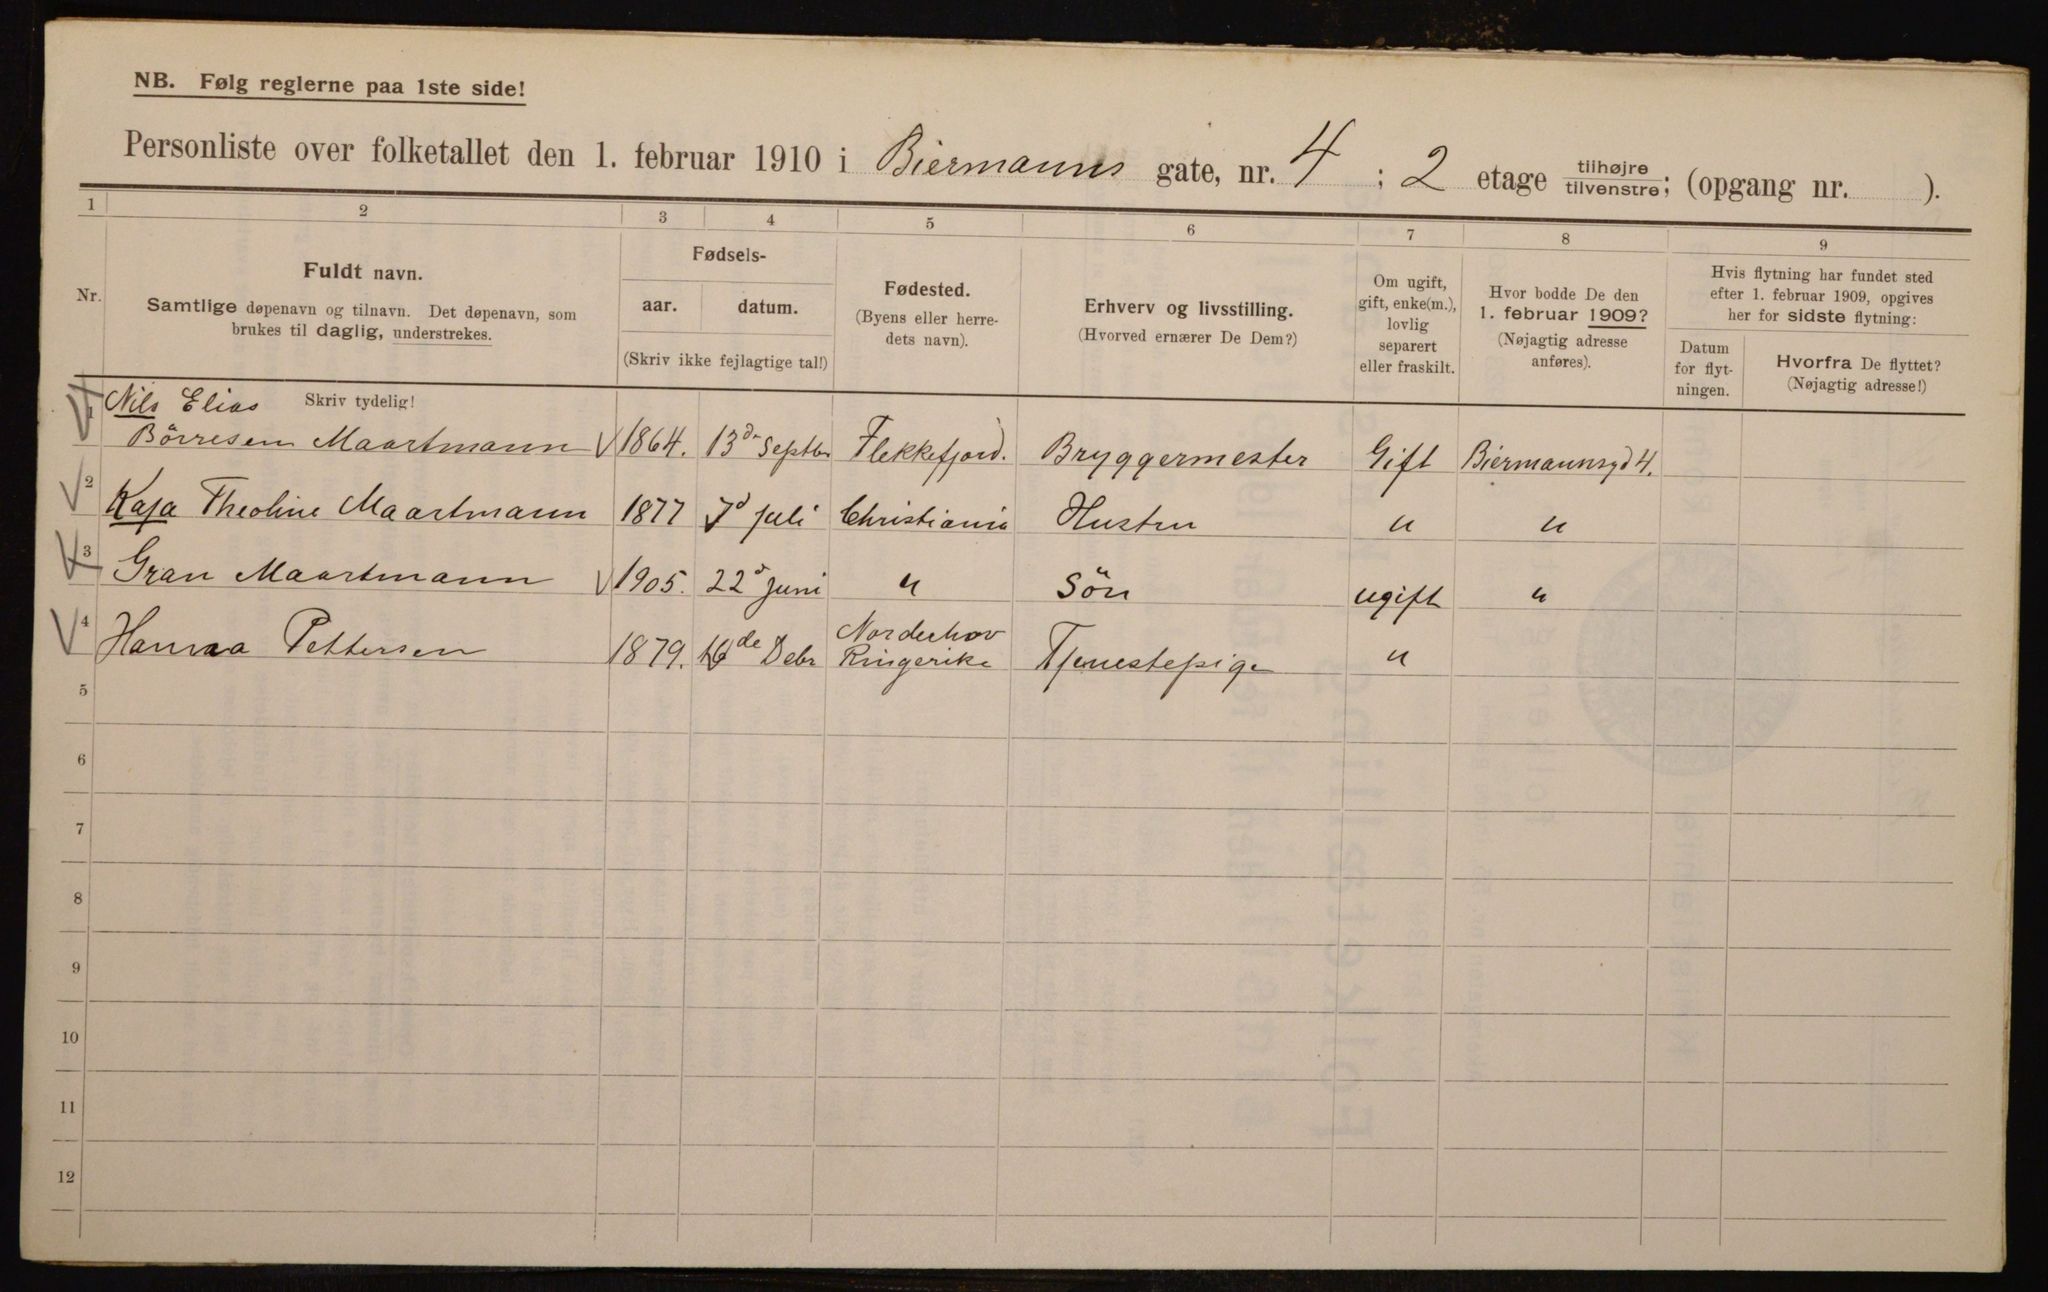 NB. Følg reglerne paa 1ste side!
Personliste over folketallet den 1. februar 1910 i Biermanns gate, nr. 4 ; 2 etage tilhøjre tilvenstre; (opgang nr. ).
1 2 3 4 5 6 7 8 9
Nr.
Fuldt navn.
Samtlige døpenavn og tilnavn. Det døpenavn, som
brukes til daglig, understrekes.
Fødsels-
aar. datum.
(Skriv ikke fejlagtige tal!)
Fødested.
(Byens eller herre-
dets navn).
Erhverv og livsstilling.
(Hvorved ernærer De Dem?)
Om ugift,
gift, enke(m.),
lovlig
separert
eller fraskilt.
Hvor bodde De den
1. februar 1909?
(Nøjagtig adresse
anføres).
Hvis flytning har fundet sted
efter 1. februar 1909, opgives
her for sidste flytning:
Datum
for flyt-
ningen.
Hvorfra De flyttet?
(Nøjagtig adresse!)
Skriv tydelig!
Nils Elias
1 Börresen Maartmann 1864. 13de Septbr Flekkefjord. Bryggermester Gift Biermannsgd 4.
2 Kaja Theoline Maartmann 1877 7d Juli Christiania Hustru " "
3 Gran Maartmann 1905. 22d Juni " Sön ugift "
Norderhov
4 Hanna Pettersen 1879. de Debr Ringerike Tjenestepige "
5
6
7
8
9
10
11
12